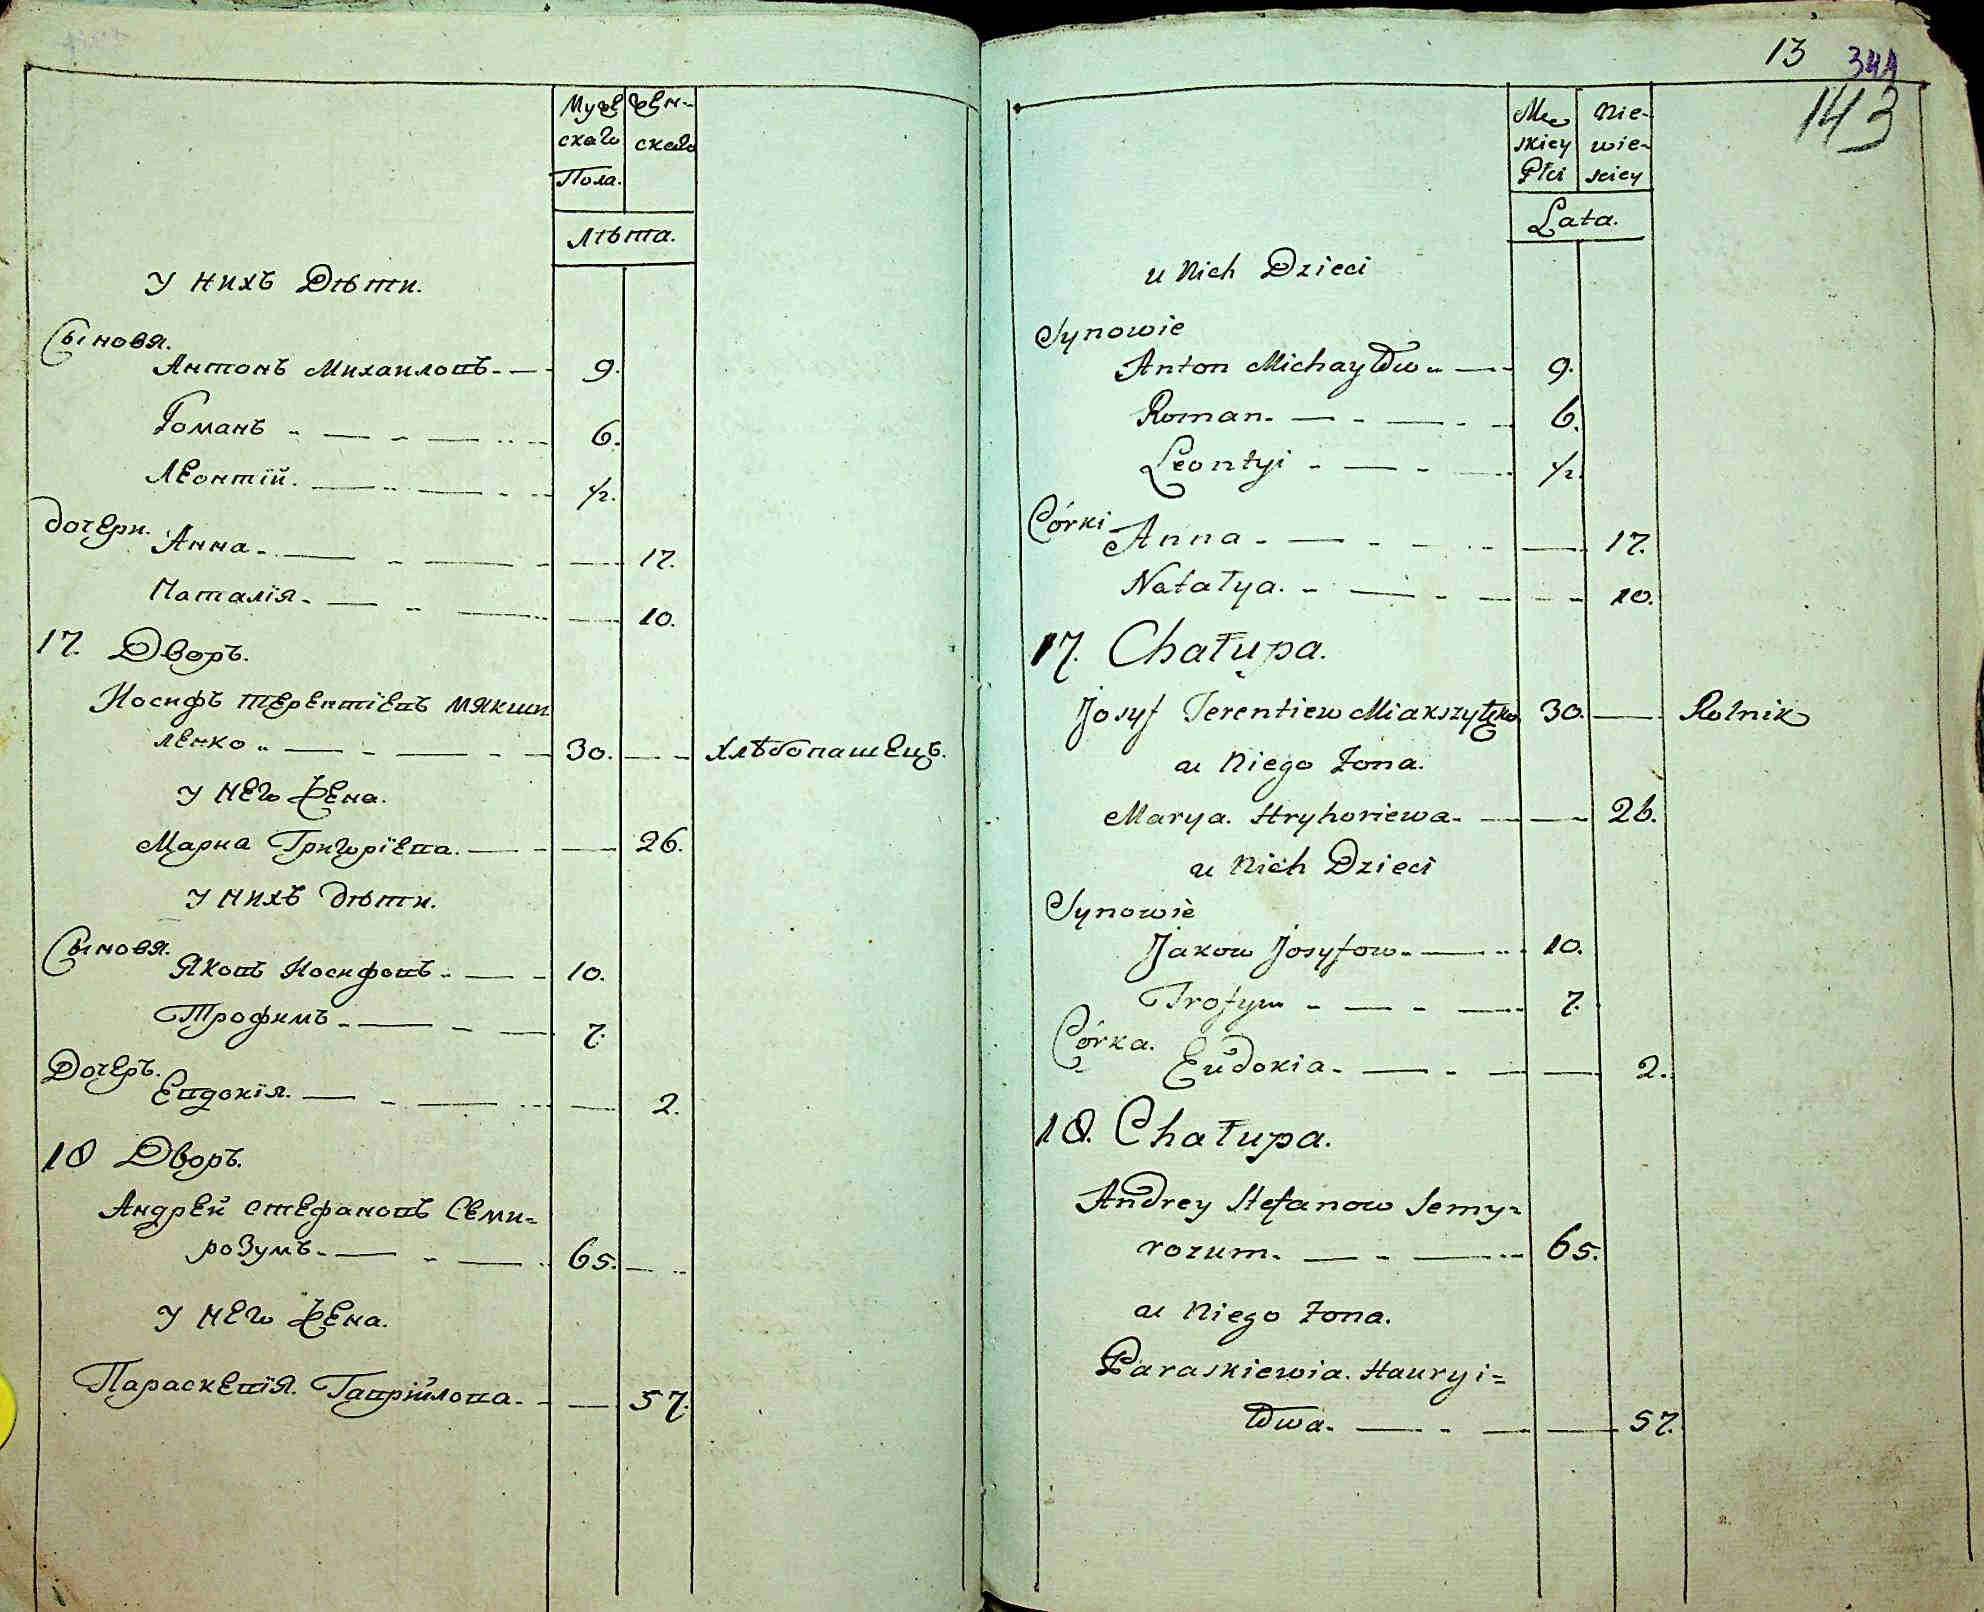 Муже
скаго
Пола.
Жен-
скаго
Лѣта.
У нихъ Дѣти.
Сыновя.
Антонъ Михаиловъ. — 9.
Романъ — — 6.
Леонтiй. — — 1/2.
дочери.
Анна — — 17.
Наталiя — — 10.
17. Дворъ.
Иосифъ Терентiевъ Мякши
ленко — — 30. — Хлѣбопашецъ.
У него Жена.
Мариа Григорiева. — — 26.
У нихъ дѣти.
Сыновя.
Яковъ Иосифовъ — — 10.
Трофимъ — — 7.
Дочеръ.
Евдокiя. — — 2.
18 Дворъ.
Андрей Стефановъ Семи=
розумъ — — 65. —
У него Жена.
Параскевiя. Гаврiйлова. — — 57.
13 344
143
Mę
skiey
Płci
Nie-
wie-
sciey
Lata.
u Nich Dzieci
Synowie
Anton Michayłow — 9.
Roman. — — 6.
Leontyi — — 1/2.
Córki
Anna — — 17.
Natalya. — — 10.
17. Chałupa.
Josyf Terentiew Miakszyłęko 30. — Rolnik
u Niego Żona.
Marya. Hryhoriewa. — — 26.
u Nich Dzieci
Synowie
Jakow Josyfow. — 10.
Trofym — — 7.
Córka.
Eudokia. — — 2.
18. Chałupa.
Andrey Stefanow Semy=
rozum. — — 65.
u Niego Żona.
Paraskiewia. Hauryi=
łowa. — — 57.